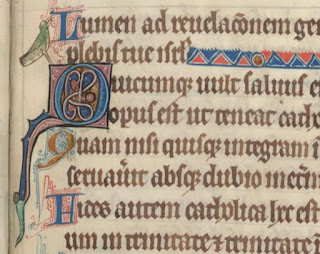 Lumen ad reuelac̃onem gen
plebis tue isrl̃
Quicumq; uult saluus e
opus est ut teneat cath
Quam nisi quisq; integram i
seruau̾it absq; dubio in et̾m
fides autem catholica hec est
um in trinitate ⁊ trinitate